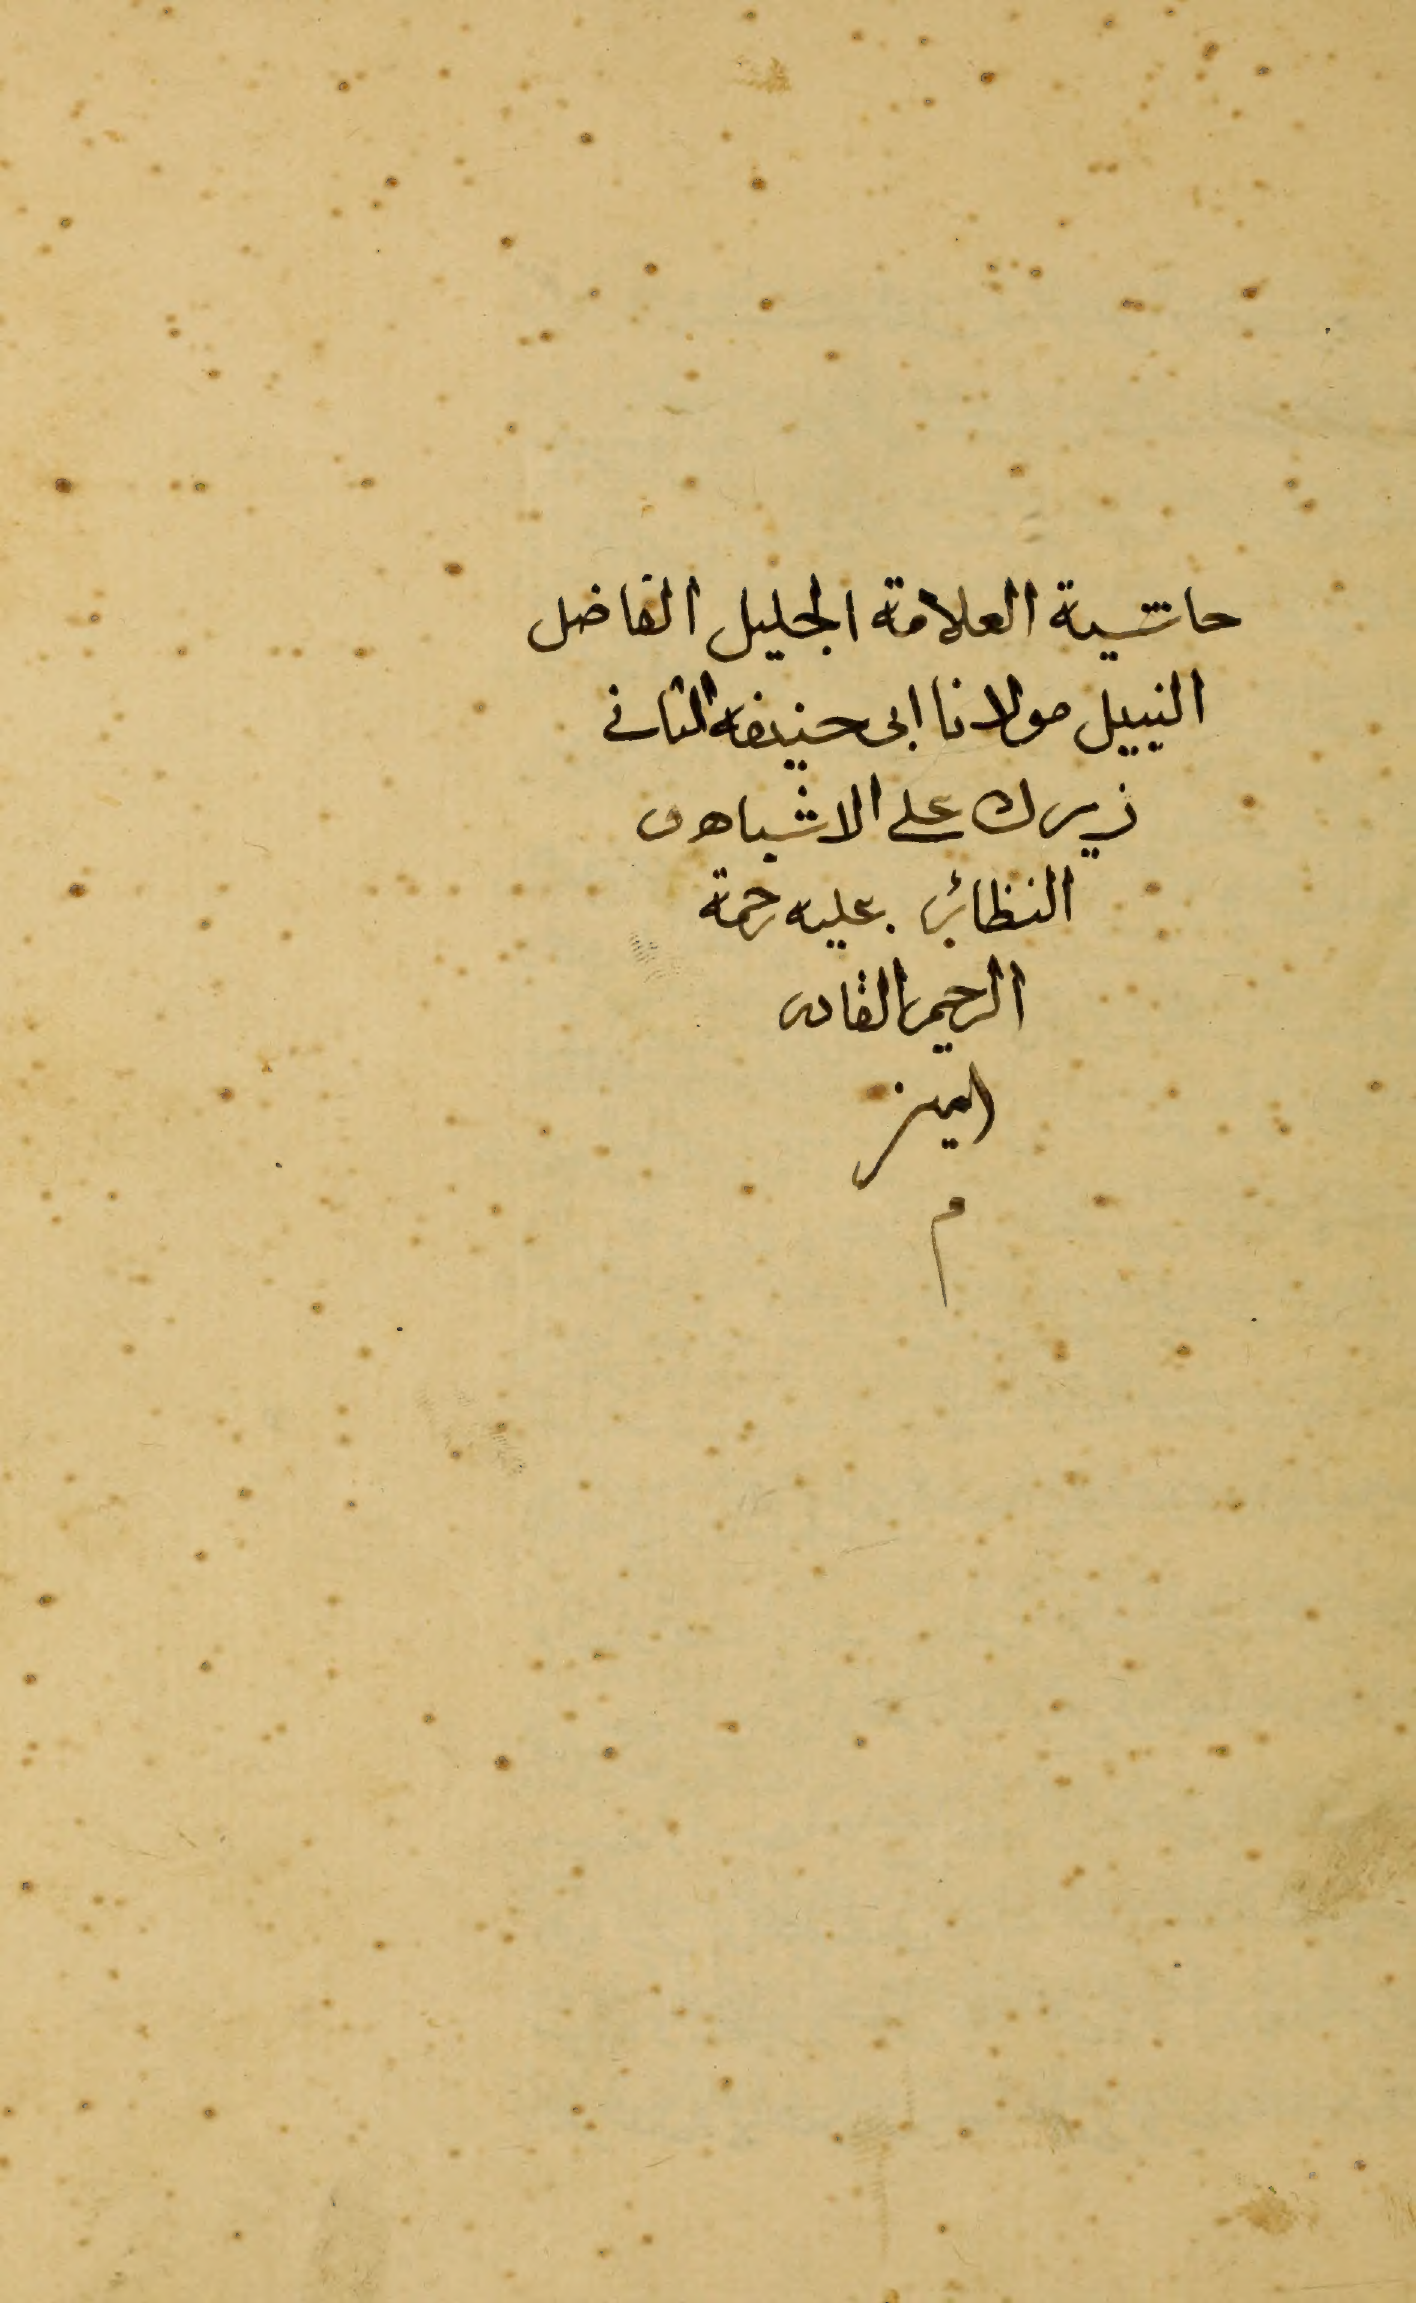 حاشية العلامة الجليل الفاضل
النبيل مولانا ابى حنيفه الثانى
زيرك على الاشباه و
النظائر عليه رحمة
الرحيم القادر
امين
م